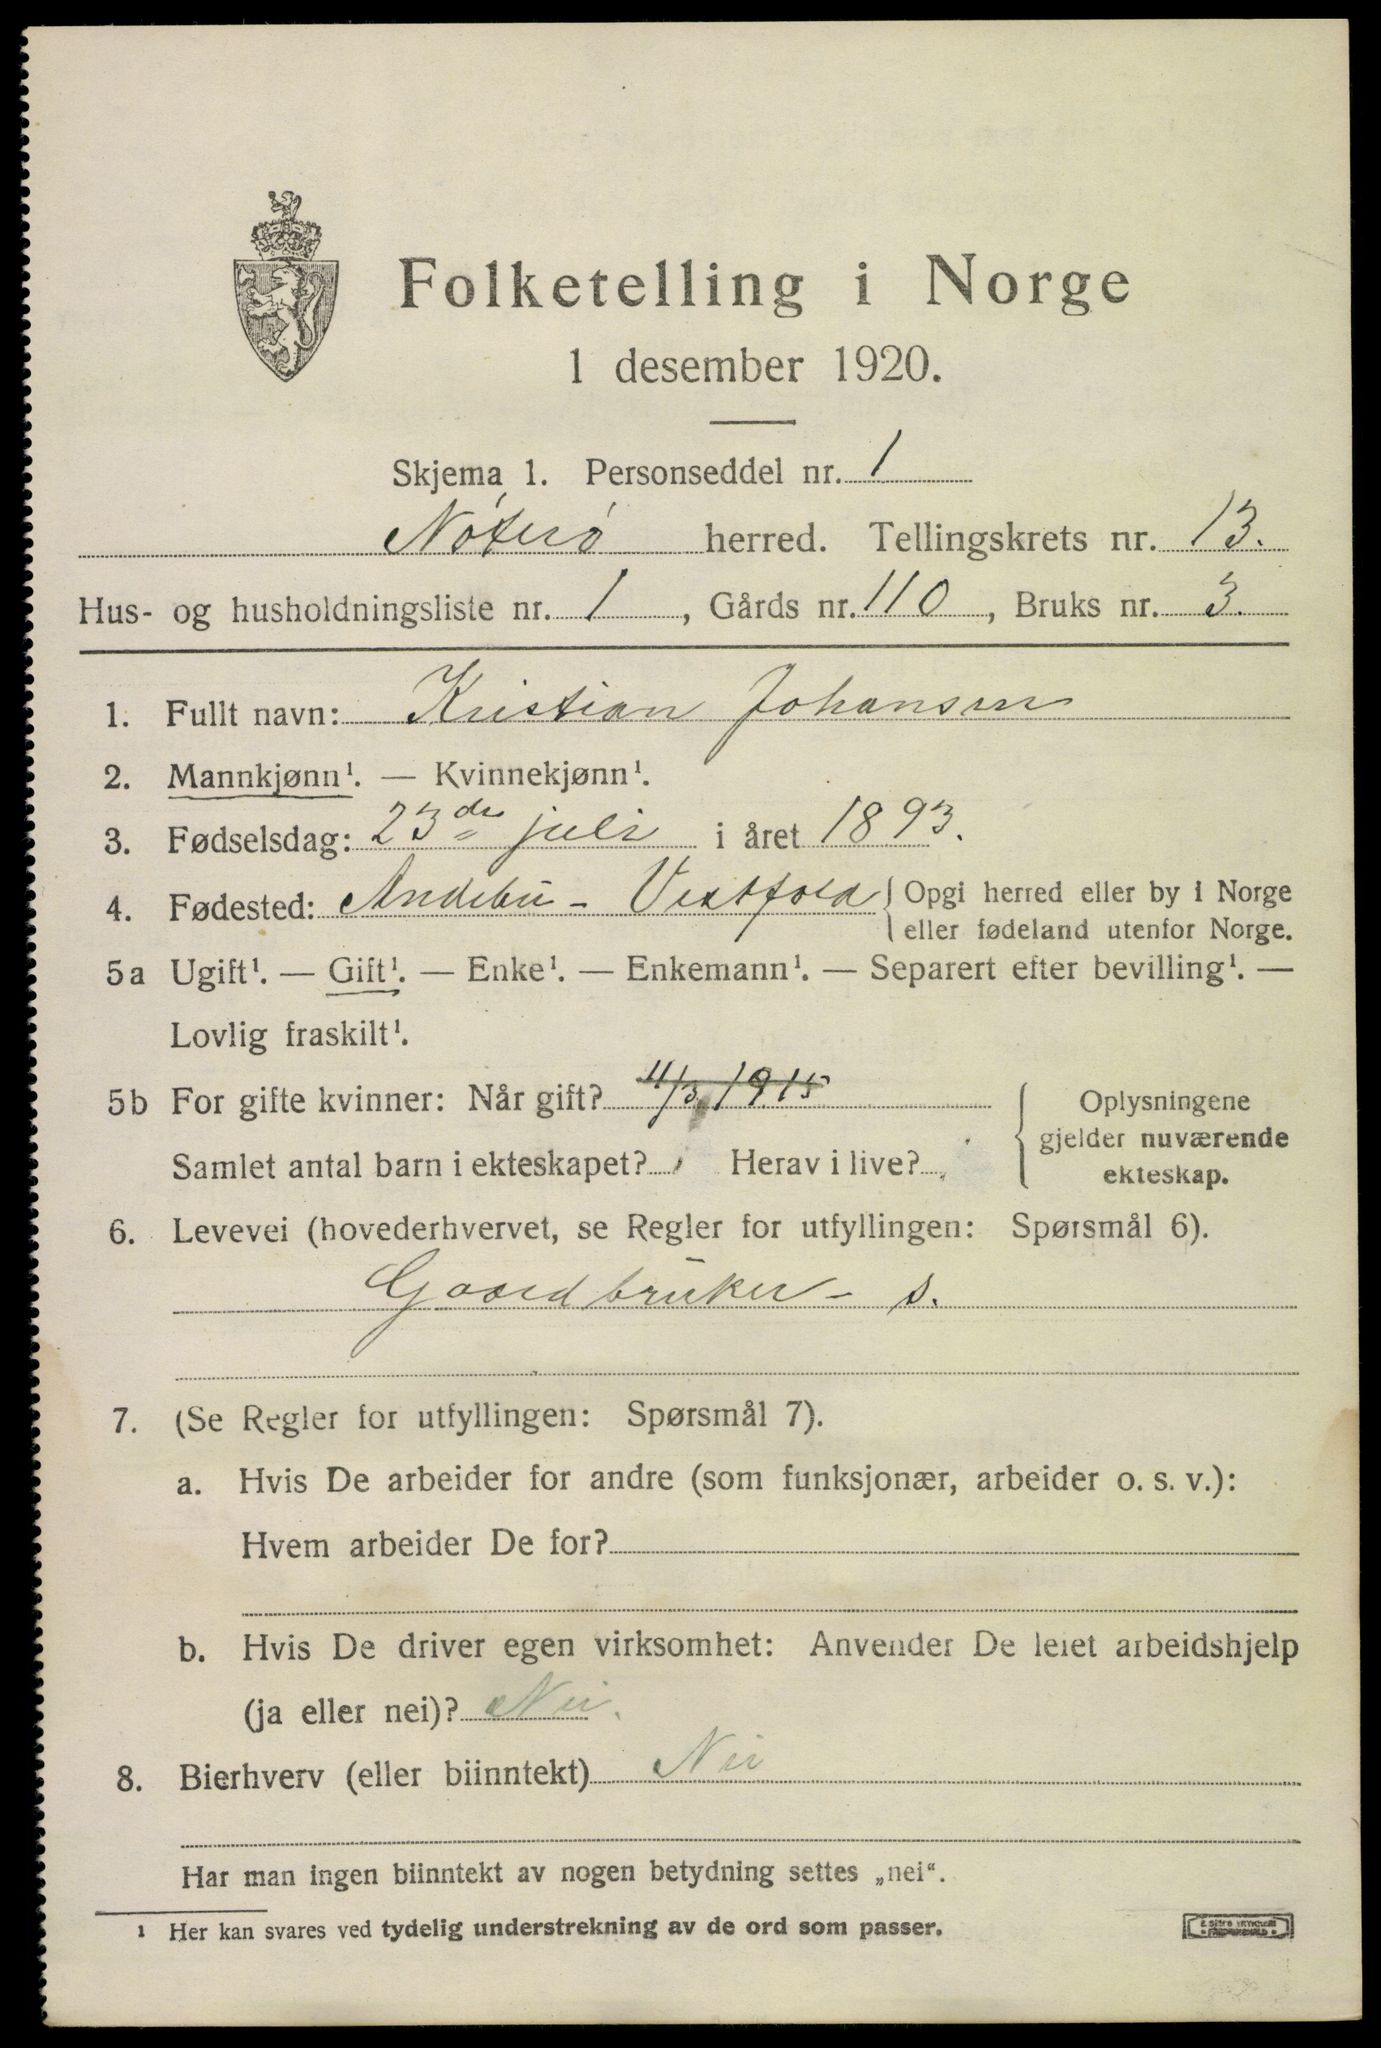 Folketelling i Norge
1 desember 1920.
Skjema 1. Personseddel nr. 1
Nøterø herred. Tellingskrets nr. 13.
Hus- og husholdningsliste nr. 1, Gårds nr. 110, Bruks nr. 3.
1. Fullt navn: Kristian Johansen
2. Mannkjønn¹. — Kvinnekjønn¹.
3. Fødselsdag: 23de juli i året 1893.
4. Fødested: Andebu - Vestfold { Opgi herred eller by i Norge
eller fødeland utenfor Norge.
5a Ugift¹. — Gift¹. — Enke¹. — Enkemann¹. — Separert efter bevilling¹. —
Lovlig fraskilt¹.
5b For gifte kvinner: Når gift? 4/3 1915 { Oplysningene
gjelder nuværende
Samlet antal barn i ekteskapet? Herav i live?
ekteskap.
6. Levevei (hovederhvervet, se Regler for utfyllingen: Spørsmål 6).
Gaardbruker - s.
7. (Se Regler for utfyllingen: Spørsmål 7).
a. Hvis De arbeider for andre (som funksjonær, arbeider o. s. v.):
Hvem arbeider De for?
b. Hvis De driver egen virksomhet: Anvender De leiet arbeidshjelp
(ja eller nei)? Nei.
8. Bierhverv (eller biinntekt) Nei
Har man ingen biinntekt av nogen betydning settes „nei“.
¹ Her kan svares ved tydelig understrekning av de ord som passer.